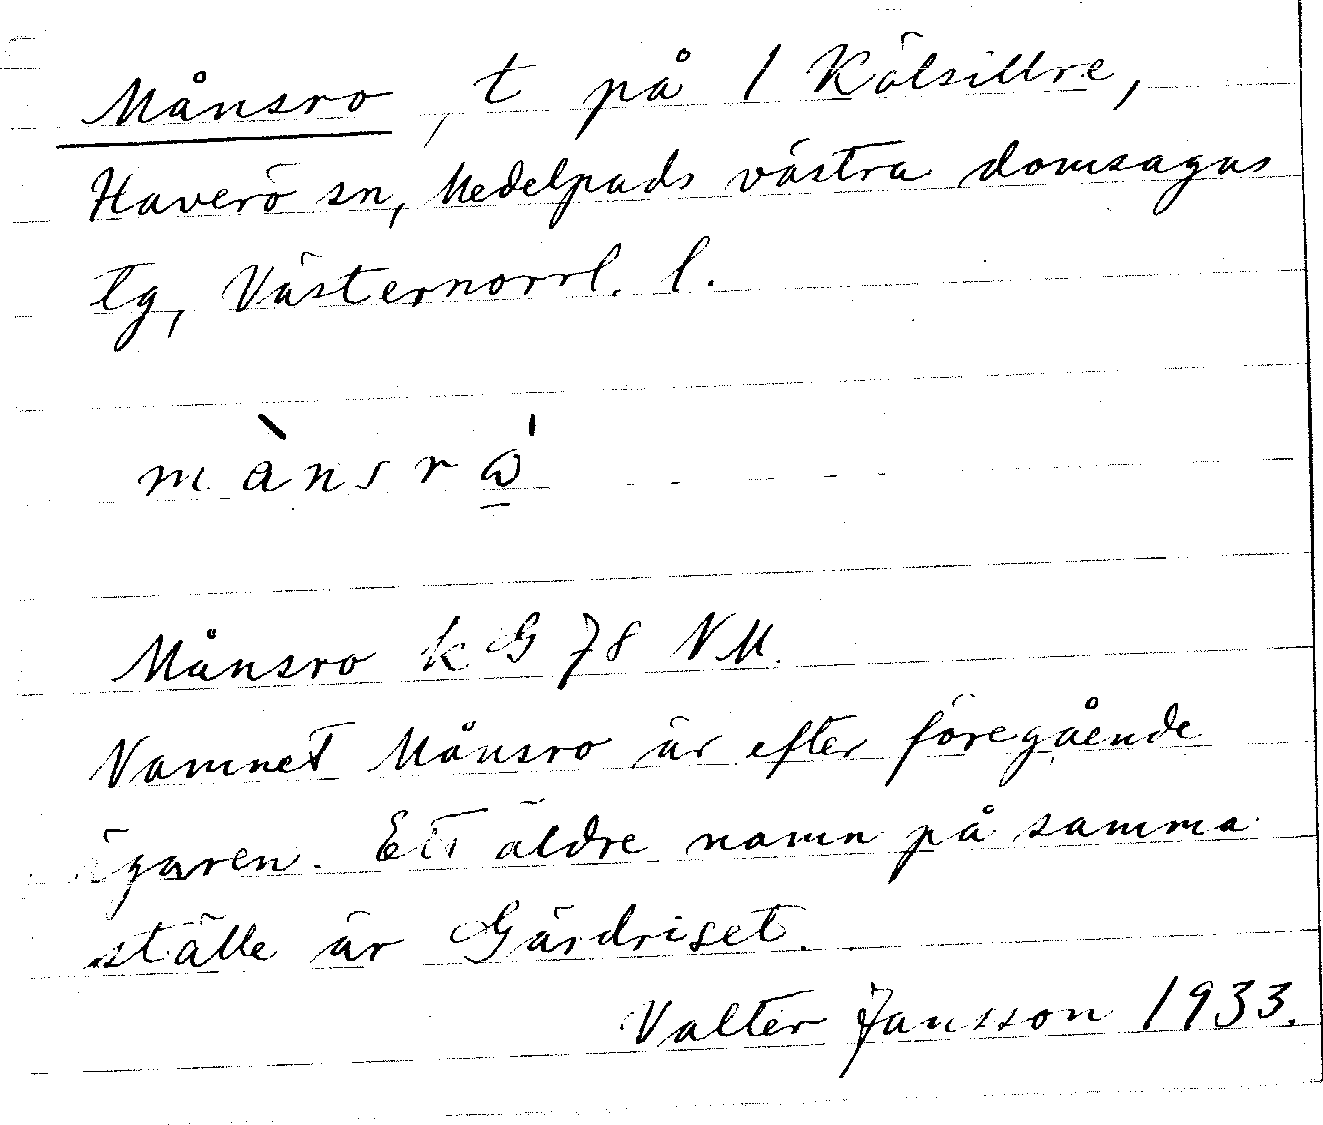 Månsro, t på 1 Kölsillre,
Haverö sn, Medelpads västra domsagas
tg, Västernorrl. l.
mànsrώ̲
Månsro k G 78 NM.
Namnet Månsro är efter föregående
ägaren. Ett äldre namn på samma
ställe är Gärdriset.
Valter Jansson 1933.